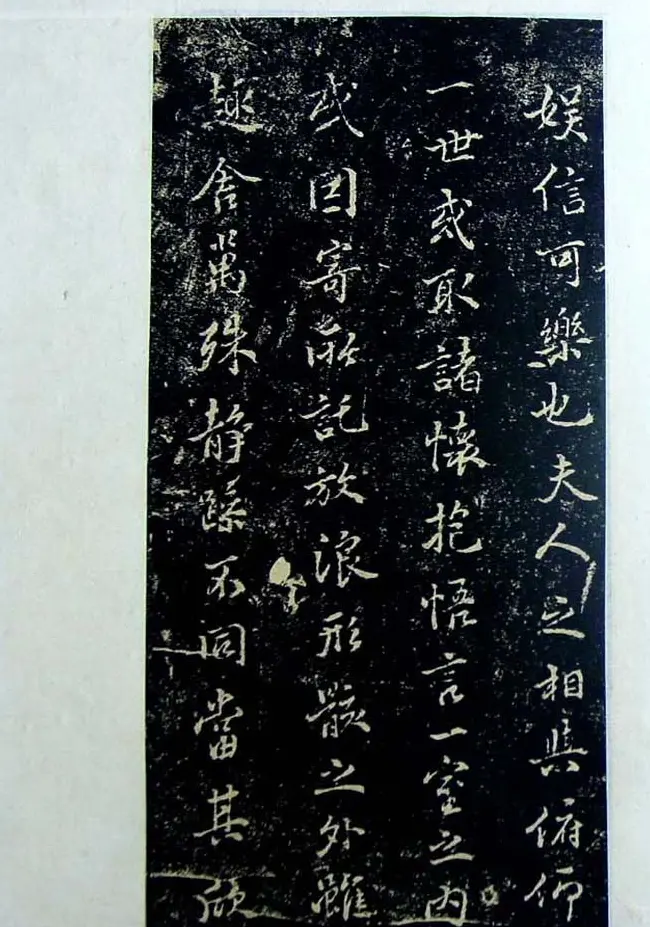 娱信可樂也夫人之相與俯仰
一世或取諸懷抱悟言一室之內
或因寄所託放浪形骸之外雖
趣舍萬殊静躁不同當其欣